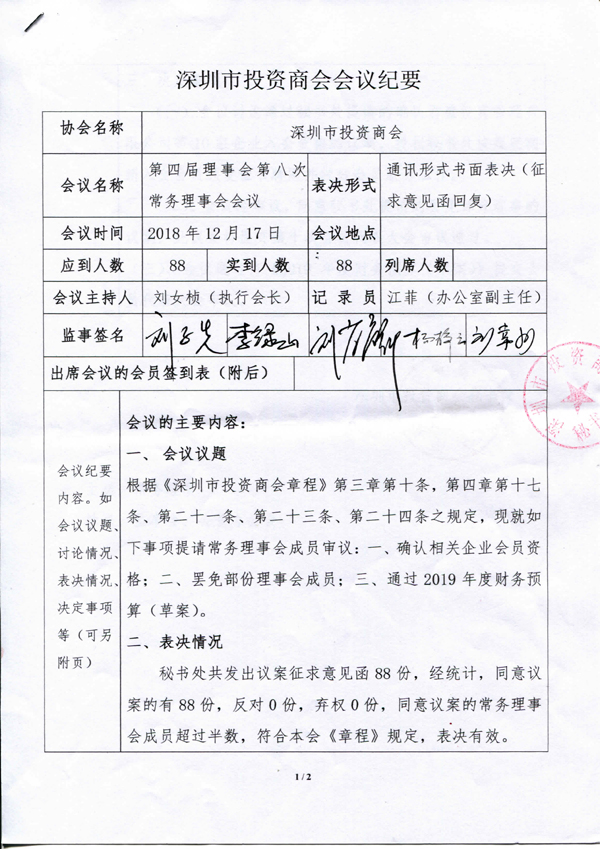 深圳市投资商会会议纪要
协会名称 深圳市投资商会
会议名称 第四届理事会第八次 表决形式 通讯形式书面表决（征
常务理事会会议 求意见函回复）
会议时间 2018年12月17日 会议地点
应到人数 88 实到人数 88 列席人数
会议主持人 刘女桢（执行会长） 记录员 江菲（办公室副主任）
监事签名
出席会议的会员签到表（附后）
会议纪要
内容。如
会议议题、
讨论情况、
表决情况、
决定事项
等（可另
附页）
会议的主要内容：
一、会议议题
根据《深圳市投资商会章程》第三章第十条，第四章第十七
条、第二十一条、第二十三条、第二十四条之规定，现就如
下事项提请常务理事会成员审议：一、确认相关企业会员资
格；二、罢免部份理事会成员；三、通过2019年度财务预
算（草案）。
二、表决情况
秘书处共发出议案征求意见函88份，经统计，同意议
案的有88份，反对0份，弃权0份，同意议案的常务理事
会成员超过半数，符合本会《章程》规定，表决有效。
1/2